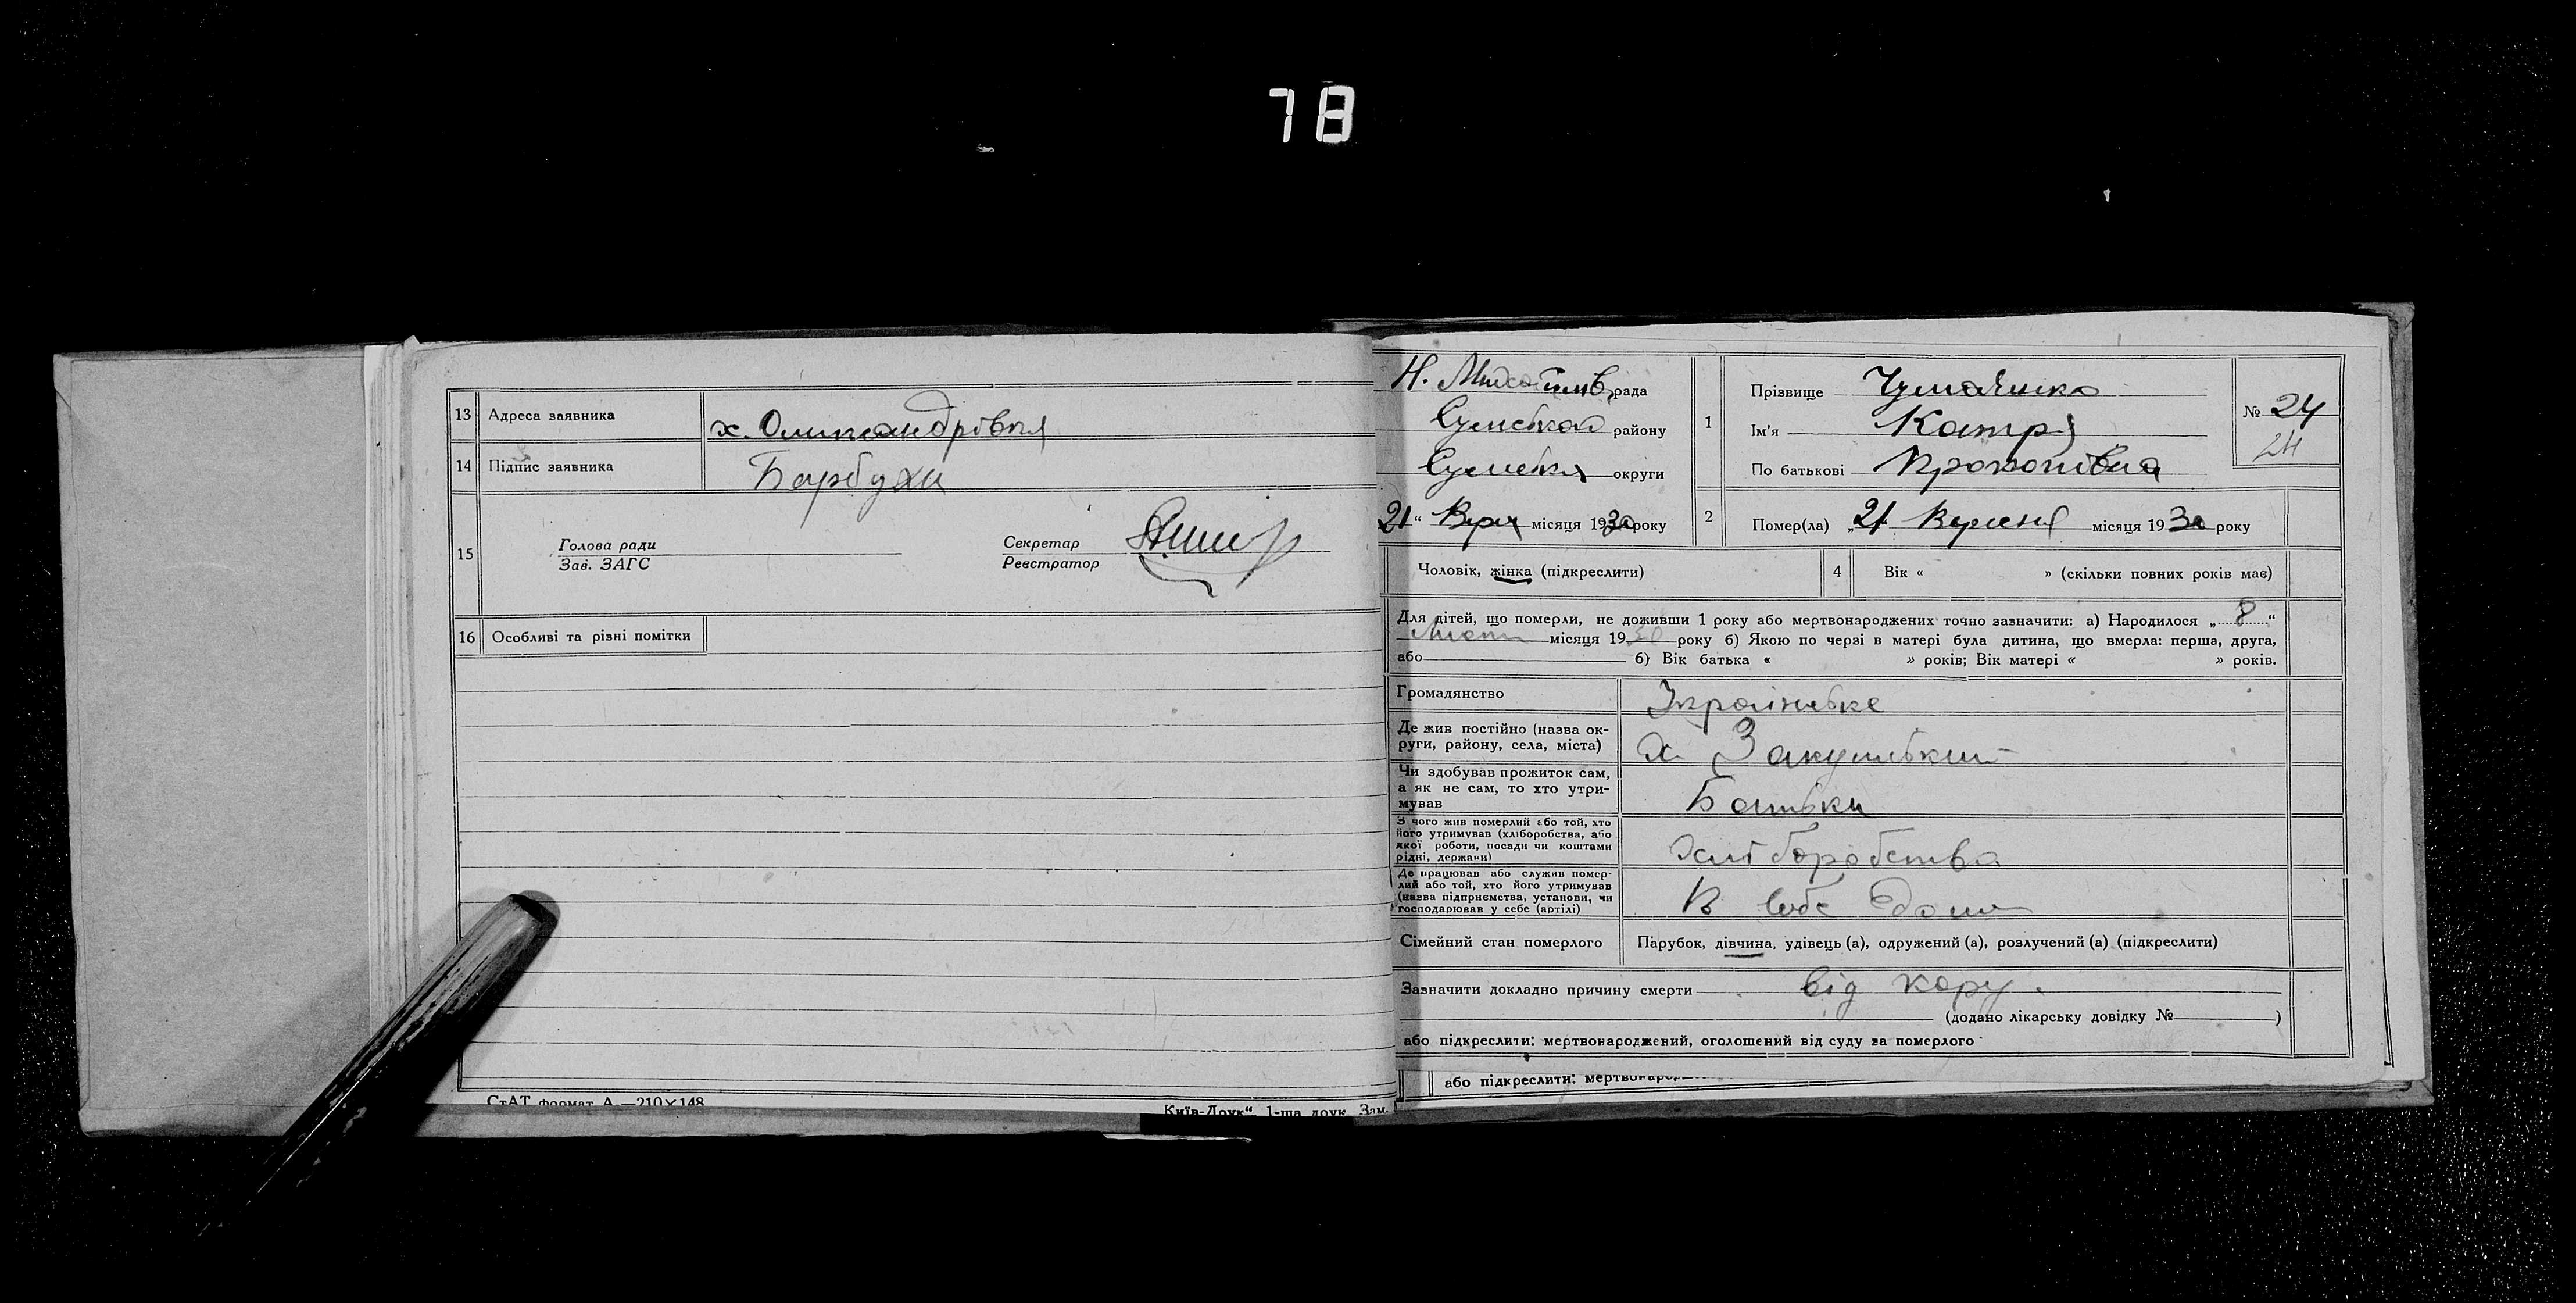 78
13 Адреса заявника х. Олександрівня
14 Підпис заявника Барбуха
15 Голова ради
Зав. ЗАГС
Секретар
Реєстратор
16 Особливі та різні помітки
СтАТ формат А —210×148
Київ-Друк“. 1-ша друк. Зам.
Н. рада
району
округи
1 Прізвище
Ім'я Катря
По батькові Прокопівна
№ 24
24
21 “ Верес місяця 1930 року
2 Помер(ла) „ 21 Вересня місяця 1930 року
Чоловік, жінка (підкреслити)
4 Вік « » (скільки повних років має)
Для дітей, що померли, не доживши 1 року або мертвонароджених точно зазначити: а) Народилося „ 8 “
місяця 1930 року б) Якою по черзі в матері була дитина, що вмерла: перша, друга,
або б) Вік батька « » років; Вік матері « » років.
Громадянство Українське
Де жив постійно (назва ок-
руги, району, села, міста) х.
Чи здобував прожиток сам,
а як не сам, то хто утри-
мував Батьки
З чого жив померлий або той, хто
його утримував (хліборобства, або
якої роботи, посади чи коштами
рідні, держави) Хліборобство
Де працював або служив помер-
лий або той, хто його утримував
(назва підприємства, установи, чи
господарював у себе (артілі) В себе вдома
Сімейний стан померлого Парубок, дівчина, удівець (а), одружений (а), розлучений (а) (підкреслити)
Зазначити докладно причину смерти від кору.
(додано лікарську довідку № )
або підкреслити: мертвонароджений, оголошений від суду за померлого
або підкреслити: